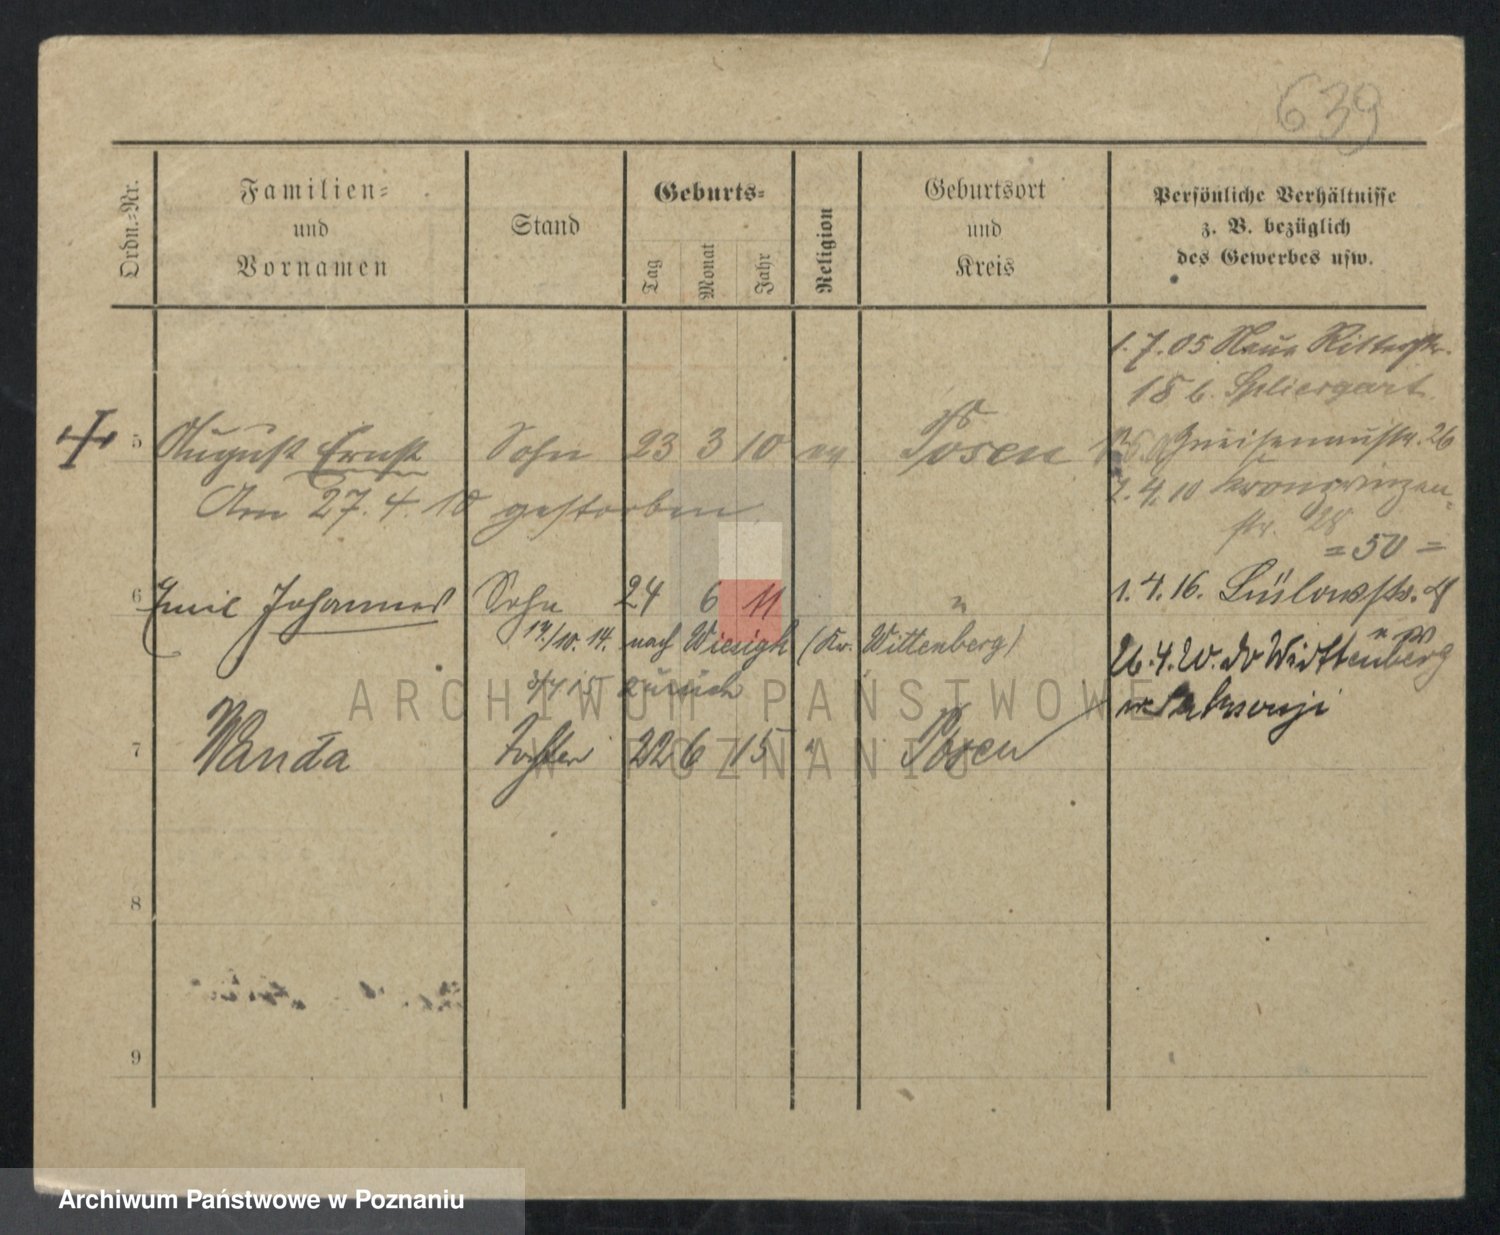 639
Ordn.-Nr.
Familien-
und
Vornamen
Stand
Geburts-
Tag Monat Jahr
Religion
Geburtsort
und
Kreis
Persönliche Verhältnisse
z. B. bezüglich
des Gewerbes usw.
1.7.05 Neue Ritterstr.
18 b.
5 August Ernst Sohn 23 3 10 ev Posen Gneisenaustr. 26
Am 27.4.10 gestorben
1.4.10 Kronprinzen-
str. 28
=50=
6 Emil Johannes Sohn 24 6 11 " 1.4.16.
14./10.14. nach Wiesigk (Kr. Wittenberg)
15 zurück
26.4.20. do Wittenberg
w Saksonji
7 Wanda Tochter 22 6 15 " Posen
8
9
ARCHIWUM PAŃSTWOWE
W POZNANIU
Archiwum Państwowe w Poznaniu